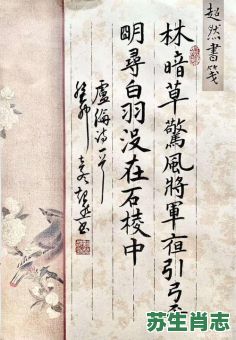 超然書箋
林暗草驚風將軍夜引弓平
明尋白羽没在石棱中
盧綸诗一首
癸卯
苏生肖志